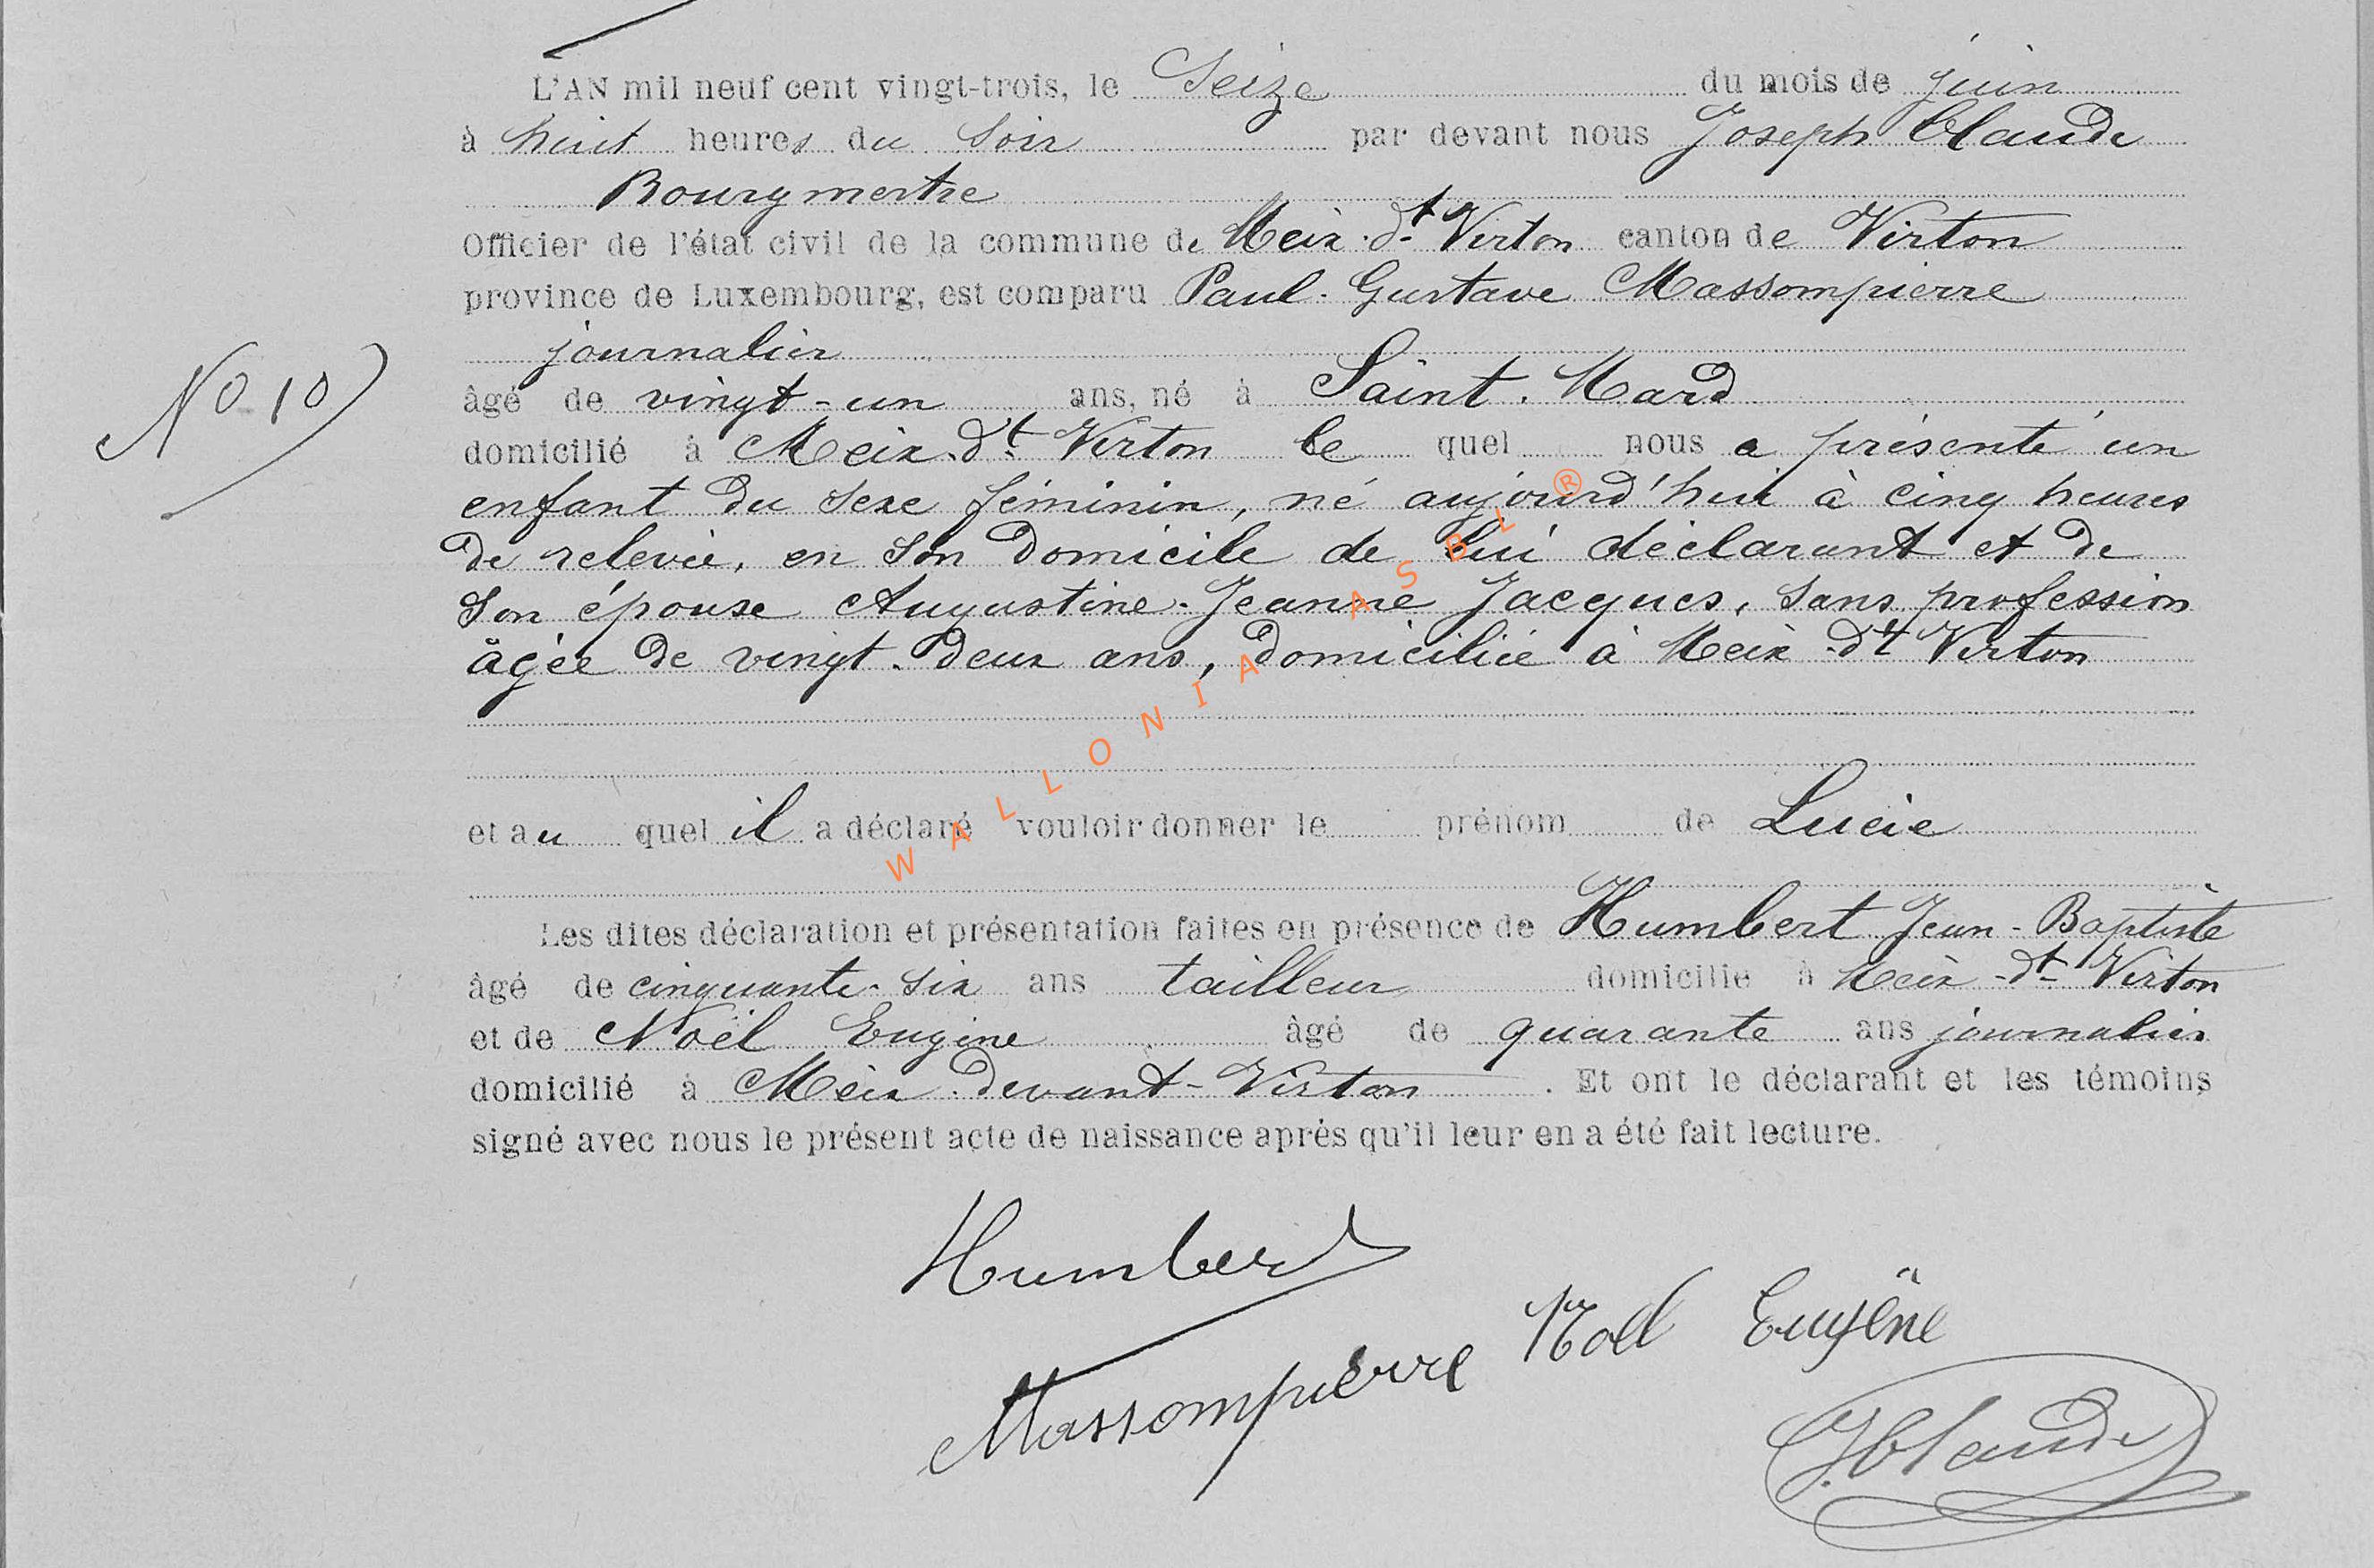 L'AN mil neuf cent vingt-trois, le Seize du mois de juin
à huit heures du Soir par devant nous Joseph Claude
Bourgmestre
Officier de l'état civil de la commune de Meix-dt Virton canton de Virton
province de Luxembourg, est comparu Paul-Gustave Massompierre
journalier
No 10
âgé de vingt-un ans, né à Saint-Mard
domicilié à Meix-dt Virton le quel nous a présenté un
enfant du sexe féminin, né aujourd'hui à cinq heures
de relevée, en son domicile de lui déclarant et de
son épouse Augustine-Jeanne Jacques, sans profession
âgée de vingt-deux ans, domiciliée à Meix-dt Virton
et au quel il a déclaré vouloir donner le prénom de Lucie
Les dites déclaration et présentation faites en présence de Humbert Jean-Baptiste
âgé de cinquante-six ans tailleur domicilié à Meix-dt-Virton
et de Noël Eugène âgé de quarante ans journalier
domicilié à Meix-devant-Virton. Et ont le déclarant et les témoins
signé avec nous le présent acte de naissance après qu'il leur en a été fait lecture.
Humbert
Noël Eugène
Massompierre
J. Claude
WALLONIA ASBL ®